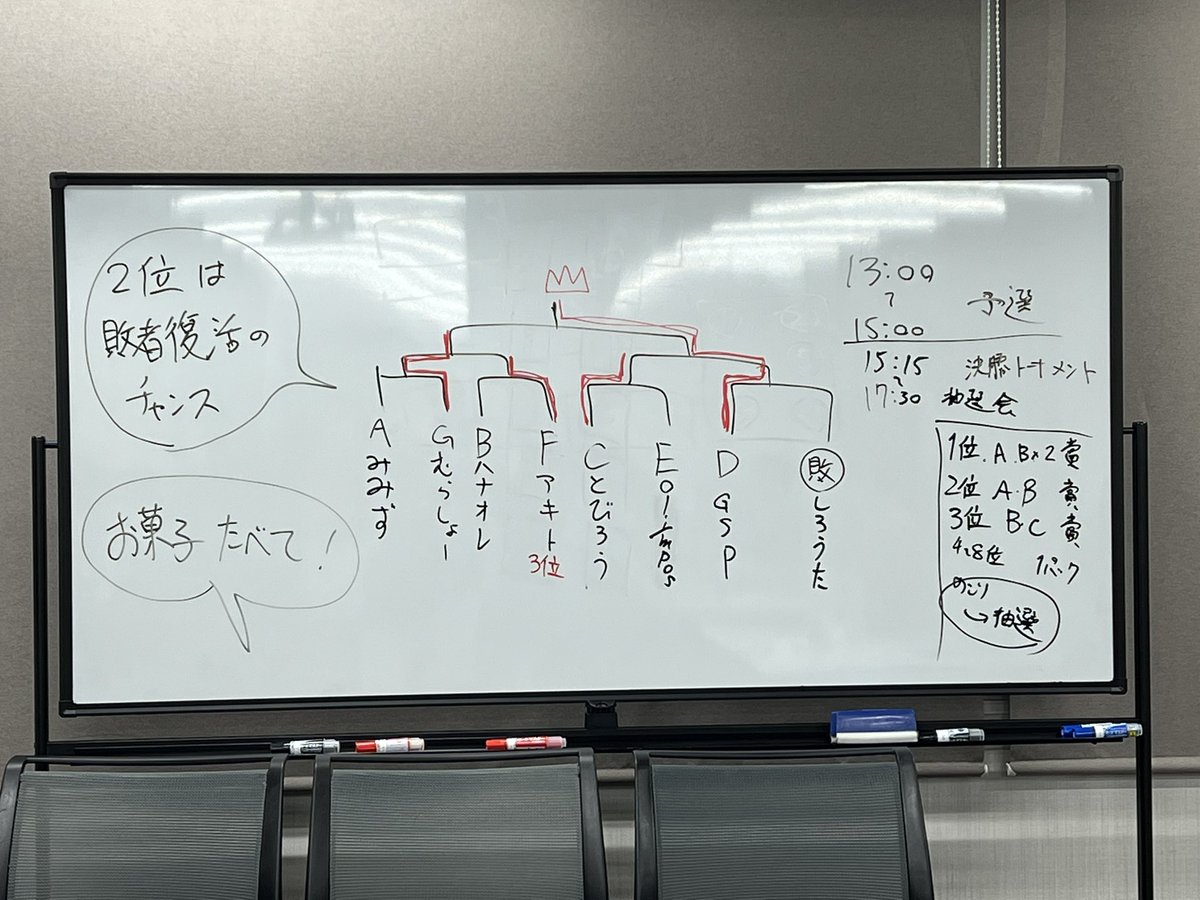 2位は
敗者復活の
チャンス
お菓子たべて!
A みみず
G むらしょー
B ハナオレ
F アキト
3位
C とびろう
E
D GSP
敗 しろうた
13:00
〜
15:00
予選
15:15
〜
17:30
決勝トーナメント
抽選会
1位 A.B×2 賞
2位 A.B 賞
3位 B.C 賞
4〜8位 1パック
のこり
→抽選